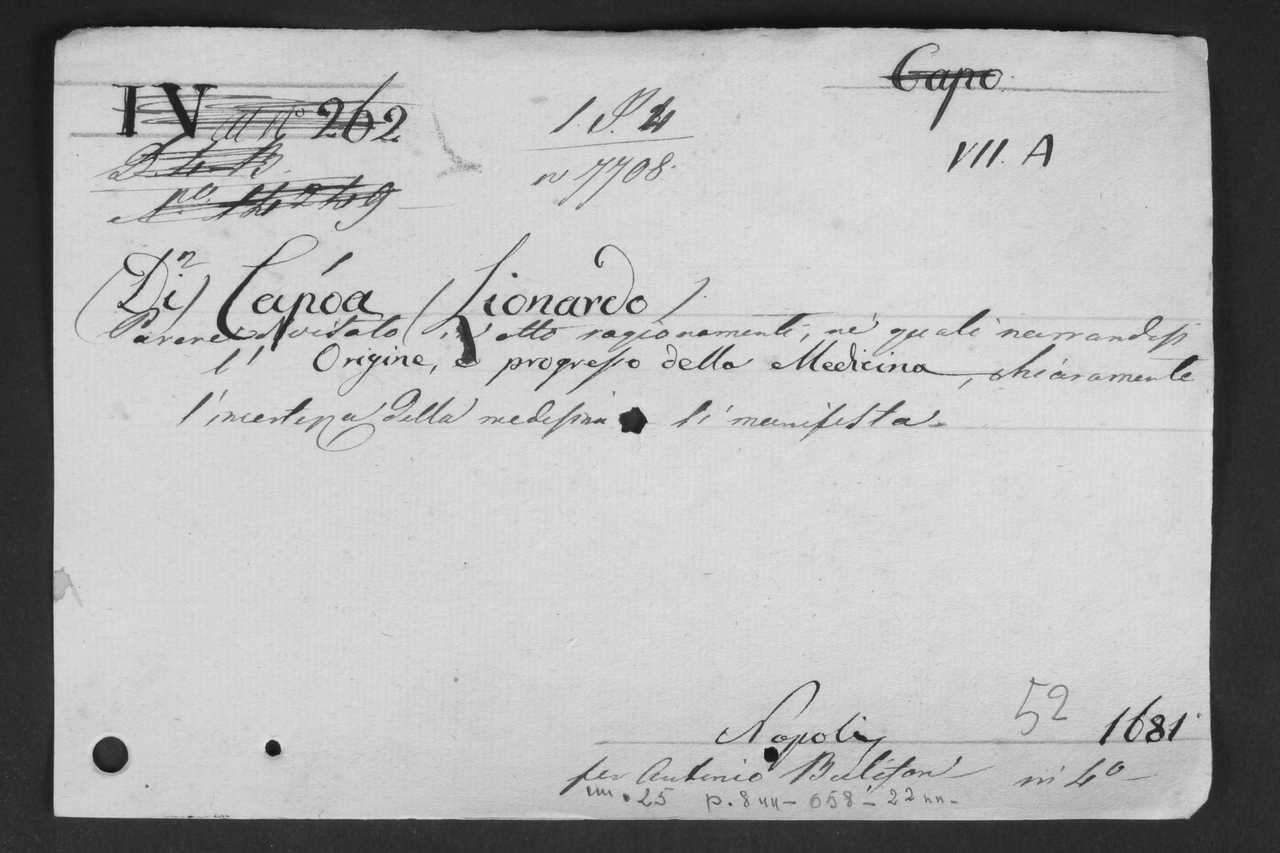 Capo
IV at nº 262
D. 4. B.
Nº. 14249
1. P. 4
nº 7708
VII. A
Di Capóa (Lionardo)
Parere divisato in otto ragionamenti, ne' quali narrandosi
l' Origine, e progresso della Medicina, chiaramente
l'incertezza della medesima si manifesta.
Napoli 52 1681
per Antonio Bulifon in 4º
25 p. 8 nn - 658 - 22 nn -